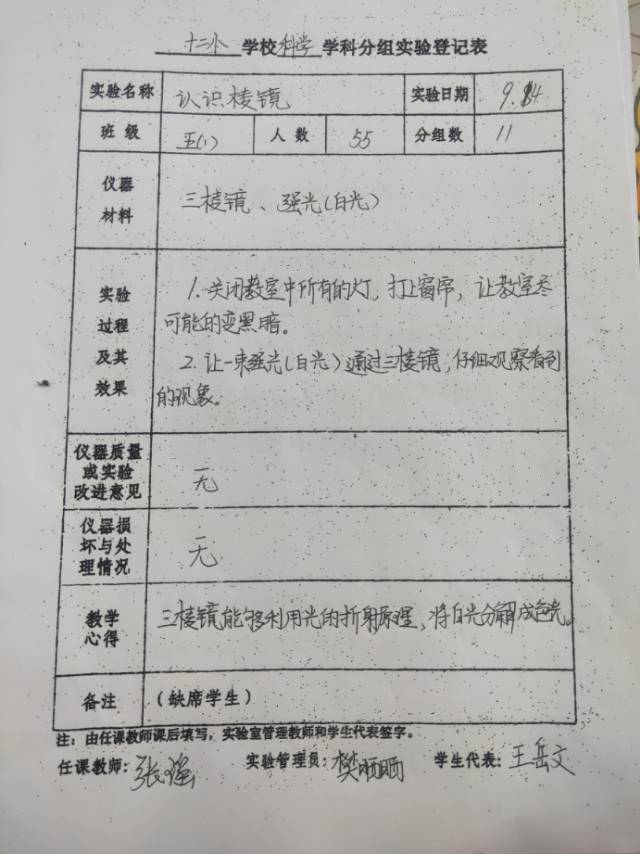 十二小 学校 科学 学科分组实验登记表
实验名称 认识棱镜 实验日期 9.
班级 五(1) 人数 55 分组数 11
仪器
材料
三棱镜、强光(白光)
实验
过程
及其
效果
1.关闭教室中所有的灯,打上窗帘,让教室尽
可能的变黑暗。
2.让一束强光(白光)通过三棱镜,仔细观察看到
的现象。
仪器质量
或实验
改进意见
无
仪器损
坏与处
理情况
无
教学
心得
三棱镜能够利用光的折射原理,将白光分解成色光。
备注 (缺席学生)
注:由任课教师课后填写,实验室管理教师和学生代表签字。
任课教师:张瑶 实验管理员:樊晒晒 学生代表:王岳文